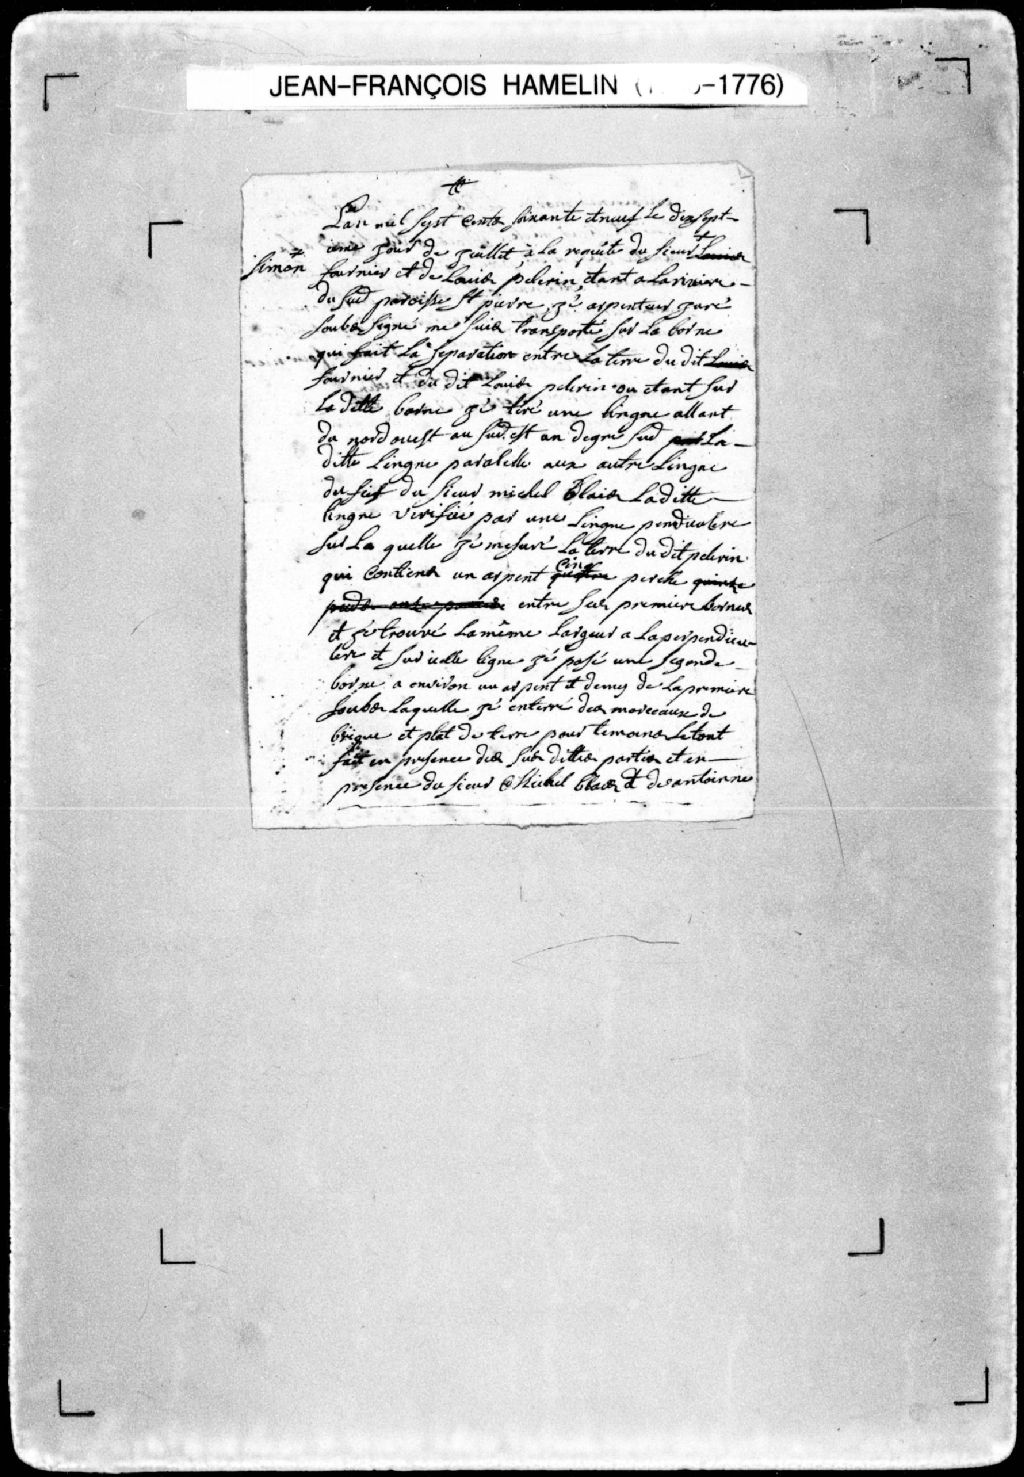 JEAN-FRANÇOIS HAMELIN (1 -1776)
Lan mil sept cents soixante et neuf le dixsept
ieme jour de juillet a la requete du sieur Louis
simon
fournier et de Louis pelerin etant a la riviere
du sud paroisse St pierre je arpenteur juré
soubs signé me suis transporté sur la borne
qui fait la separation entre la terre du dit Louis
fournier et du dit Louis pelerin ou etant sur
la ditte borne jé tiré une lingne allant
du nord ouest au sud est un degre sud La
ditte Lingne paralelle aux autre Lingne
du fief du sieur michel Blais La ditte
lingne verifiéé par une Lingne pendiculere
sur La quelle jé mesuré La terre du dit pelerin
qui contient un arpent cinq quattre perche quinze
pieds entre ses premiere bornes
et jé trouvé la même largeur a la perpendicu
lere et sur icelle ligne jé posé une segonde
borne a environ un arpent et demy de la premiere
soubs laquelle jé enterré des morceaux de
brique et plat de terre pour temoins le tout
fait en presence des sus dittes parties et en
presence du sieur Michel blais et de antoinne